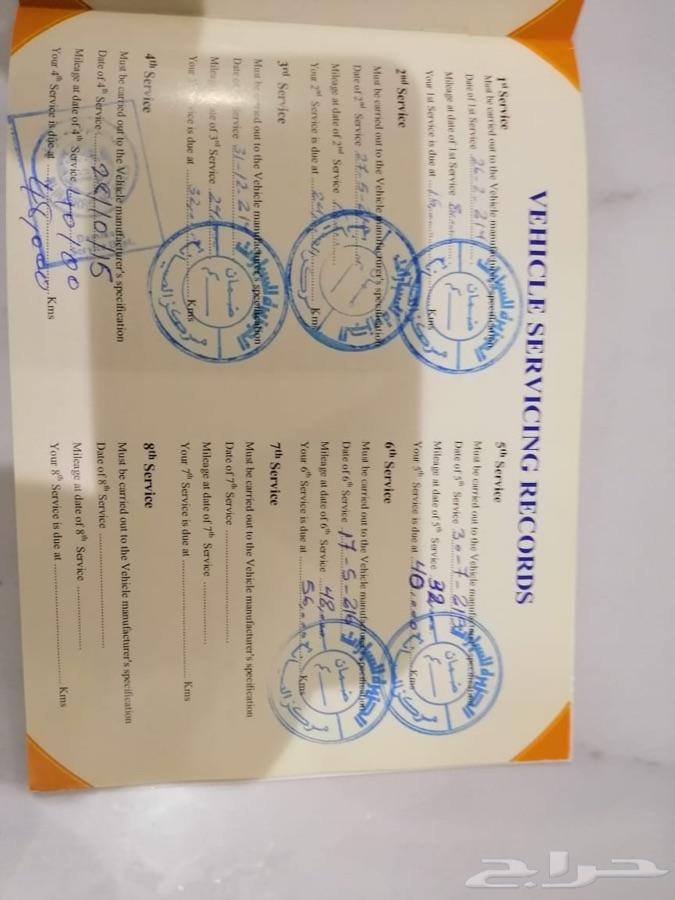 VEHICLE SERVICING RECORDS
1st Service
Must be carried out to the Vehicle manufacturer's specification
Date of 1st Service 26-2-214
Mileage at date of 1st Service
Your 1st Service is due at Kms
2nd Service
Must be carried out to the Vehicle manufacturer's specification
Date of 2nd Service 27-5-214
Mileage at date of 2nd Service
Your 2nd Service is due at Kms
3rd Service
Must be carried out to the Vehicle manufacturer's specification
Date of Service 31-12-214
Mileage at date of 3rd Service
Your Service is due at Kms
4th Service
Must be carried out to the Vehicle manufacturer's specification
Date of 4th Service 28/10/15
Mileage at date of 4th Service 40100
Your 4th Service is due at 48,000 Kms
5th Service
Must be carried out to the Vehicle manufacturer's specification
Date of 5th Service 30-7-215
Mileage at date of 5th Service
Your 5th Service is due at Kms
6th Service
Must be carried out to the Vehicle manufacturer's specification
Date of 6th Service 17-5-216
Mileage at date of 6th Service
Your 6th Service is due at Kms
7th Service
Must be carried out to the Vehicle manufacturer's specification
Date of 7th Service
Mileage at date of 7th Service
Your 7th Service is due at Kms
8th Service
Must be carried out to the Vehicle manufacturer's specification
Date of 8th Service
Mileage at date of 8th Service
Your 8th Service is due at Kms
ضمان
ضمان
ضمان
ضمان
حراج